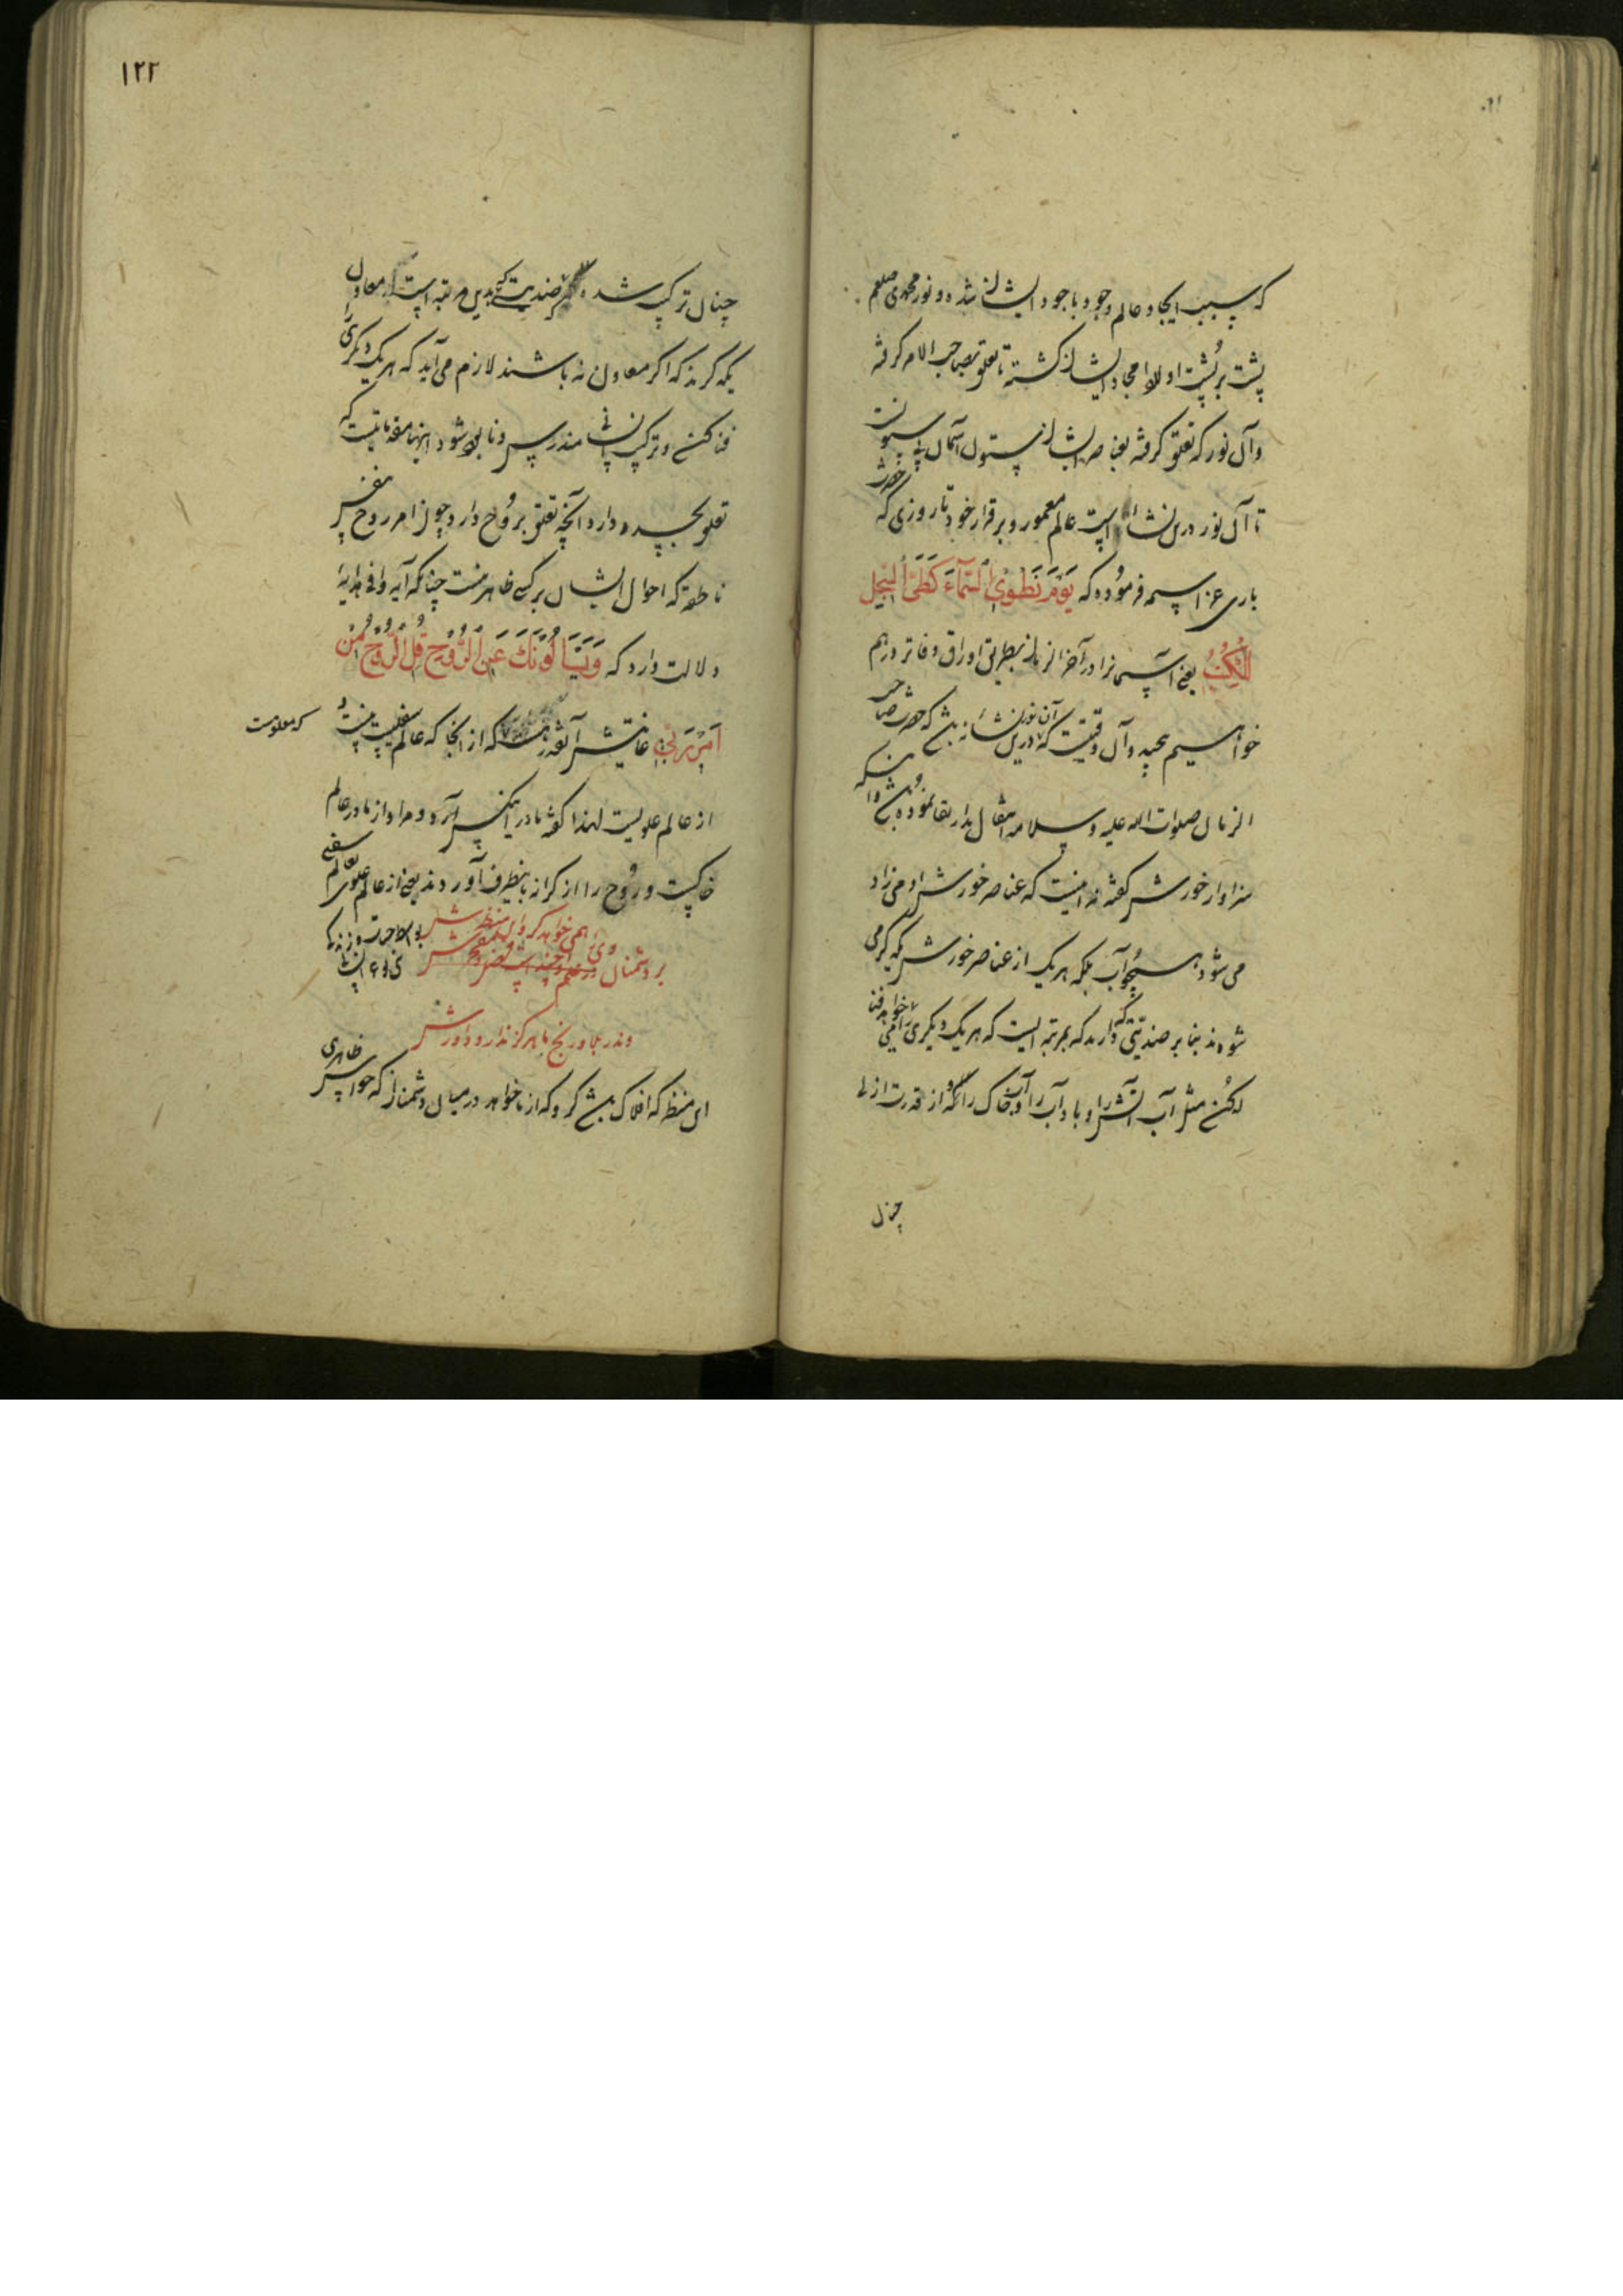 که سبب ایجاد عالم وجود باجود ایشان شده و نور محمدی صلعم
پشت بر پشت اولاد امجاد ایشان گشته تا تعلق بصاحب الامر گرفته
و آن نور که تعلق گرفته بعناصر ایشان ستون آسمان بی ستونت
تا آن نور درین نشأه است عالم معمور و برقرار خود تا روزی که حضرت
باری عز اسمه فرموده که یَوْمَ نَطْوِی السَّمَآءَ کَطَیِّ السِّجِلِّ
لِلْکُتُبِ یعنی آسمانرا در آخر الزمان بطریق اوراق دفاتر درهم
خواهیم پیچید و آن وقتیست که آن نور درین نشأه نباشد که حضرت صاحب
الزمان صلوات الله علیه و سلامه انتقال بدار بقا نموده باشد و اینکه
سزاوار خورش گفته نه اینست که عناصر خورش او می‌زاد
می شود همچو آب بلکه هریک از عناصر خورش یکدیگر می
شوند بنابر ضدیتی که دارند که بمرتبه ایست که هریک دیگری را می‌خواهد فنا
کند مثل آب آتش را و باد آب را و آب خاک را که از قدرت ازلی
چنان
۱۲۲
چنان ترکیب شده که ضدیت بدین مرتبه است معاون
یکدیگرند که اگر معاون نباشند لازم می‌آید که هریک دیگری را
فنا کند و ترکیب انسانی مندرس و نابود شود اینها مقدماتیست که
تعلق بجسد دارد و آنچه تعلق بروح دارد چون امر روح نفس
ناطقه که احوال ایشان بر کسی ظاهر نیست چنانکه آیه وافی هدایه
دلالت دارد که وَیَسْأَلُونَکَ عَنِ الرُّوحِ قُلِ الرُّوحُ مِنْ
اَمْرِ رَبِّی غایتش آنقدر هست که از آنجا که عالم سفلیست نیست
که معلومست
از عالم علویست لهذا گفته مادر این کس آرد و مراد از مادر عالم
خاکیست و روح را از کرانه باینطرف آوردند یعنی از عالم علوی بعالم سفلی
وی همی خواهد کرو این منظرش
بر دشمنان
وندر بجا و رنج ما هرگز ندارد داورش
این منظر که افلاک باشد گرو که از ما خواهد در میان دشمنان که حواس ظاهری